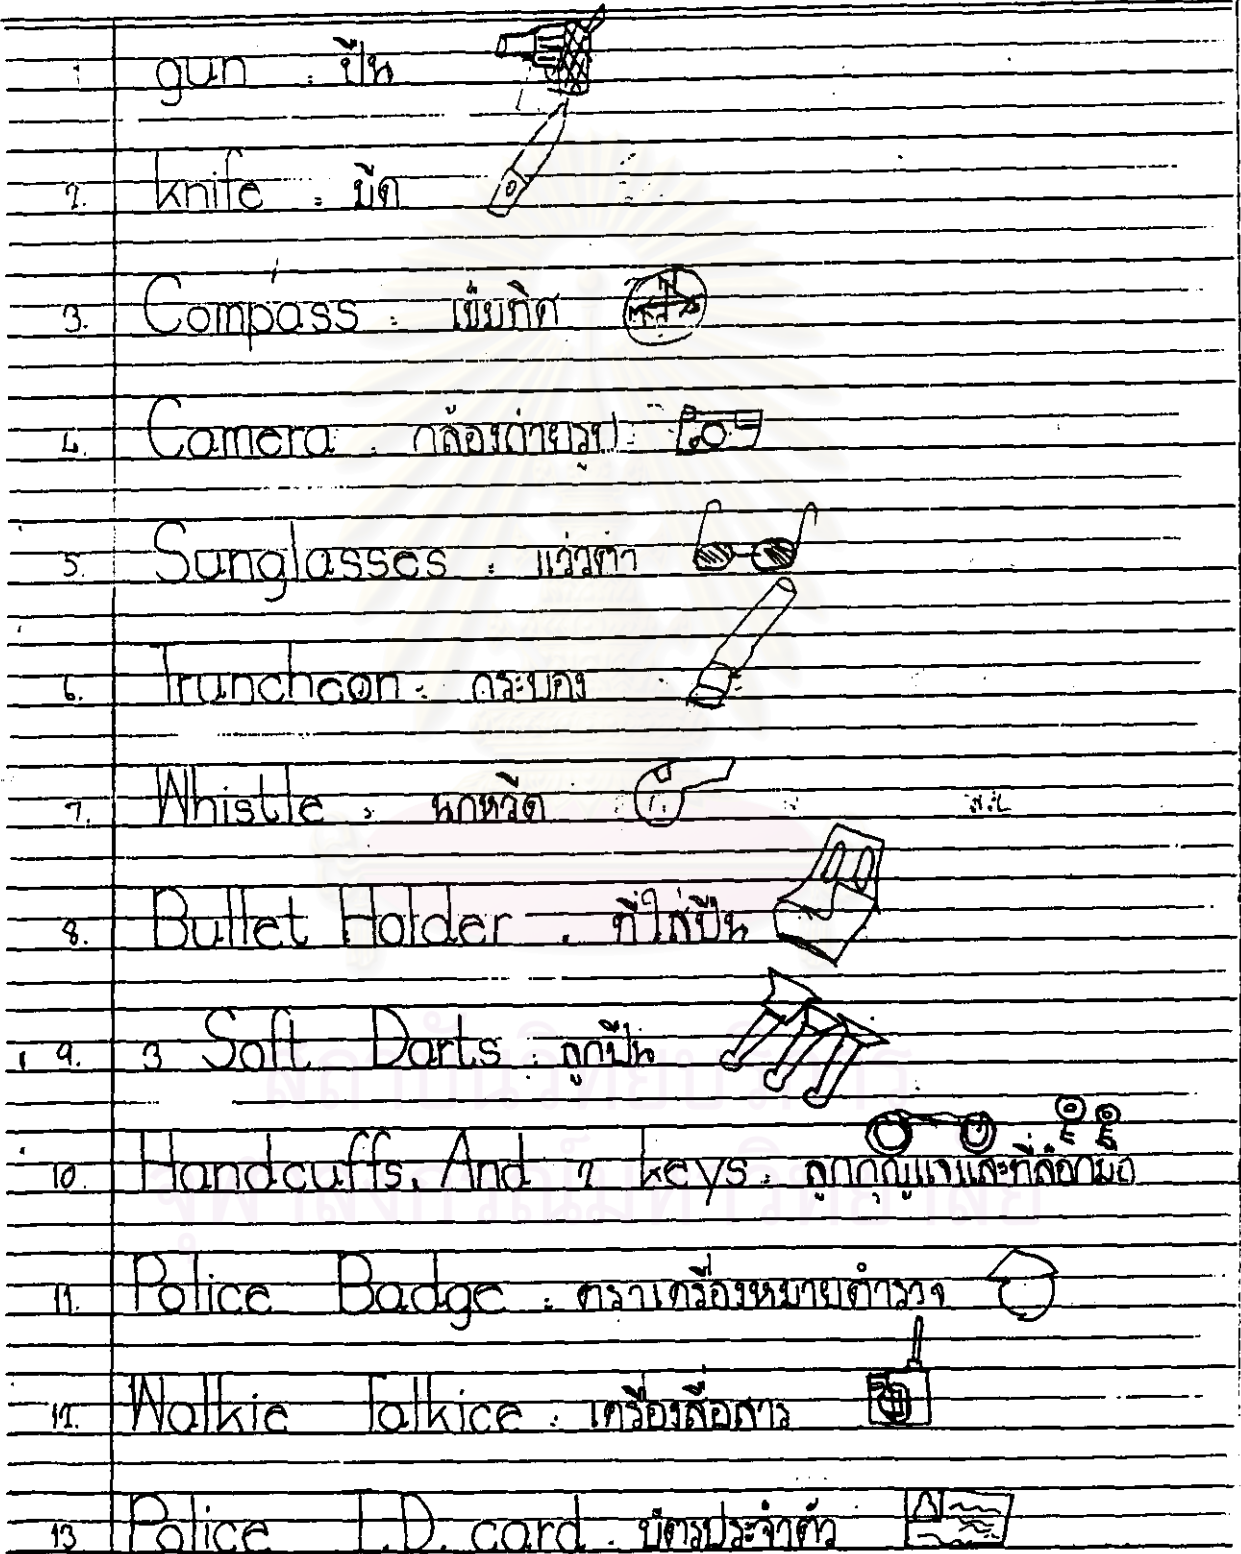 1. gun : ปืน
2. knife : มีด
3. Compass : เข็มทิศ
4. Camera : กล้องถ่ายรูป
5. Sunglasses : แว่วตา
6. Truncheon : กระบอง
7. Whistle : นกหวีด
8. Bullet Holder : ที่ใส่ปืน
9. 3 Soft Darts : ลูกปืน
10. Handcuffs, And 2 keys : ลูกกุญแจและที่ล๊อกมือ
11. Police Badge : ตราเครื่องหมายตำรวจ
12. Walkie Talkice : เครื่องสื่อสาร
13 Police I.D. card : บัตรประจำตัว
สถาบันวิทยบริการ
จุฬาลงกรณ์มหาวิทยาลัย